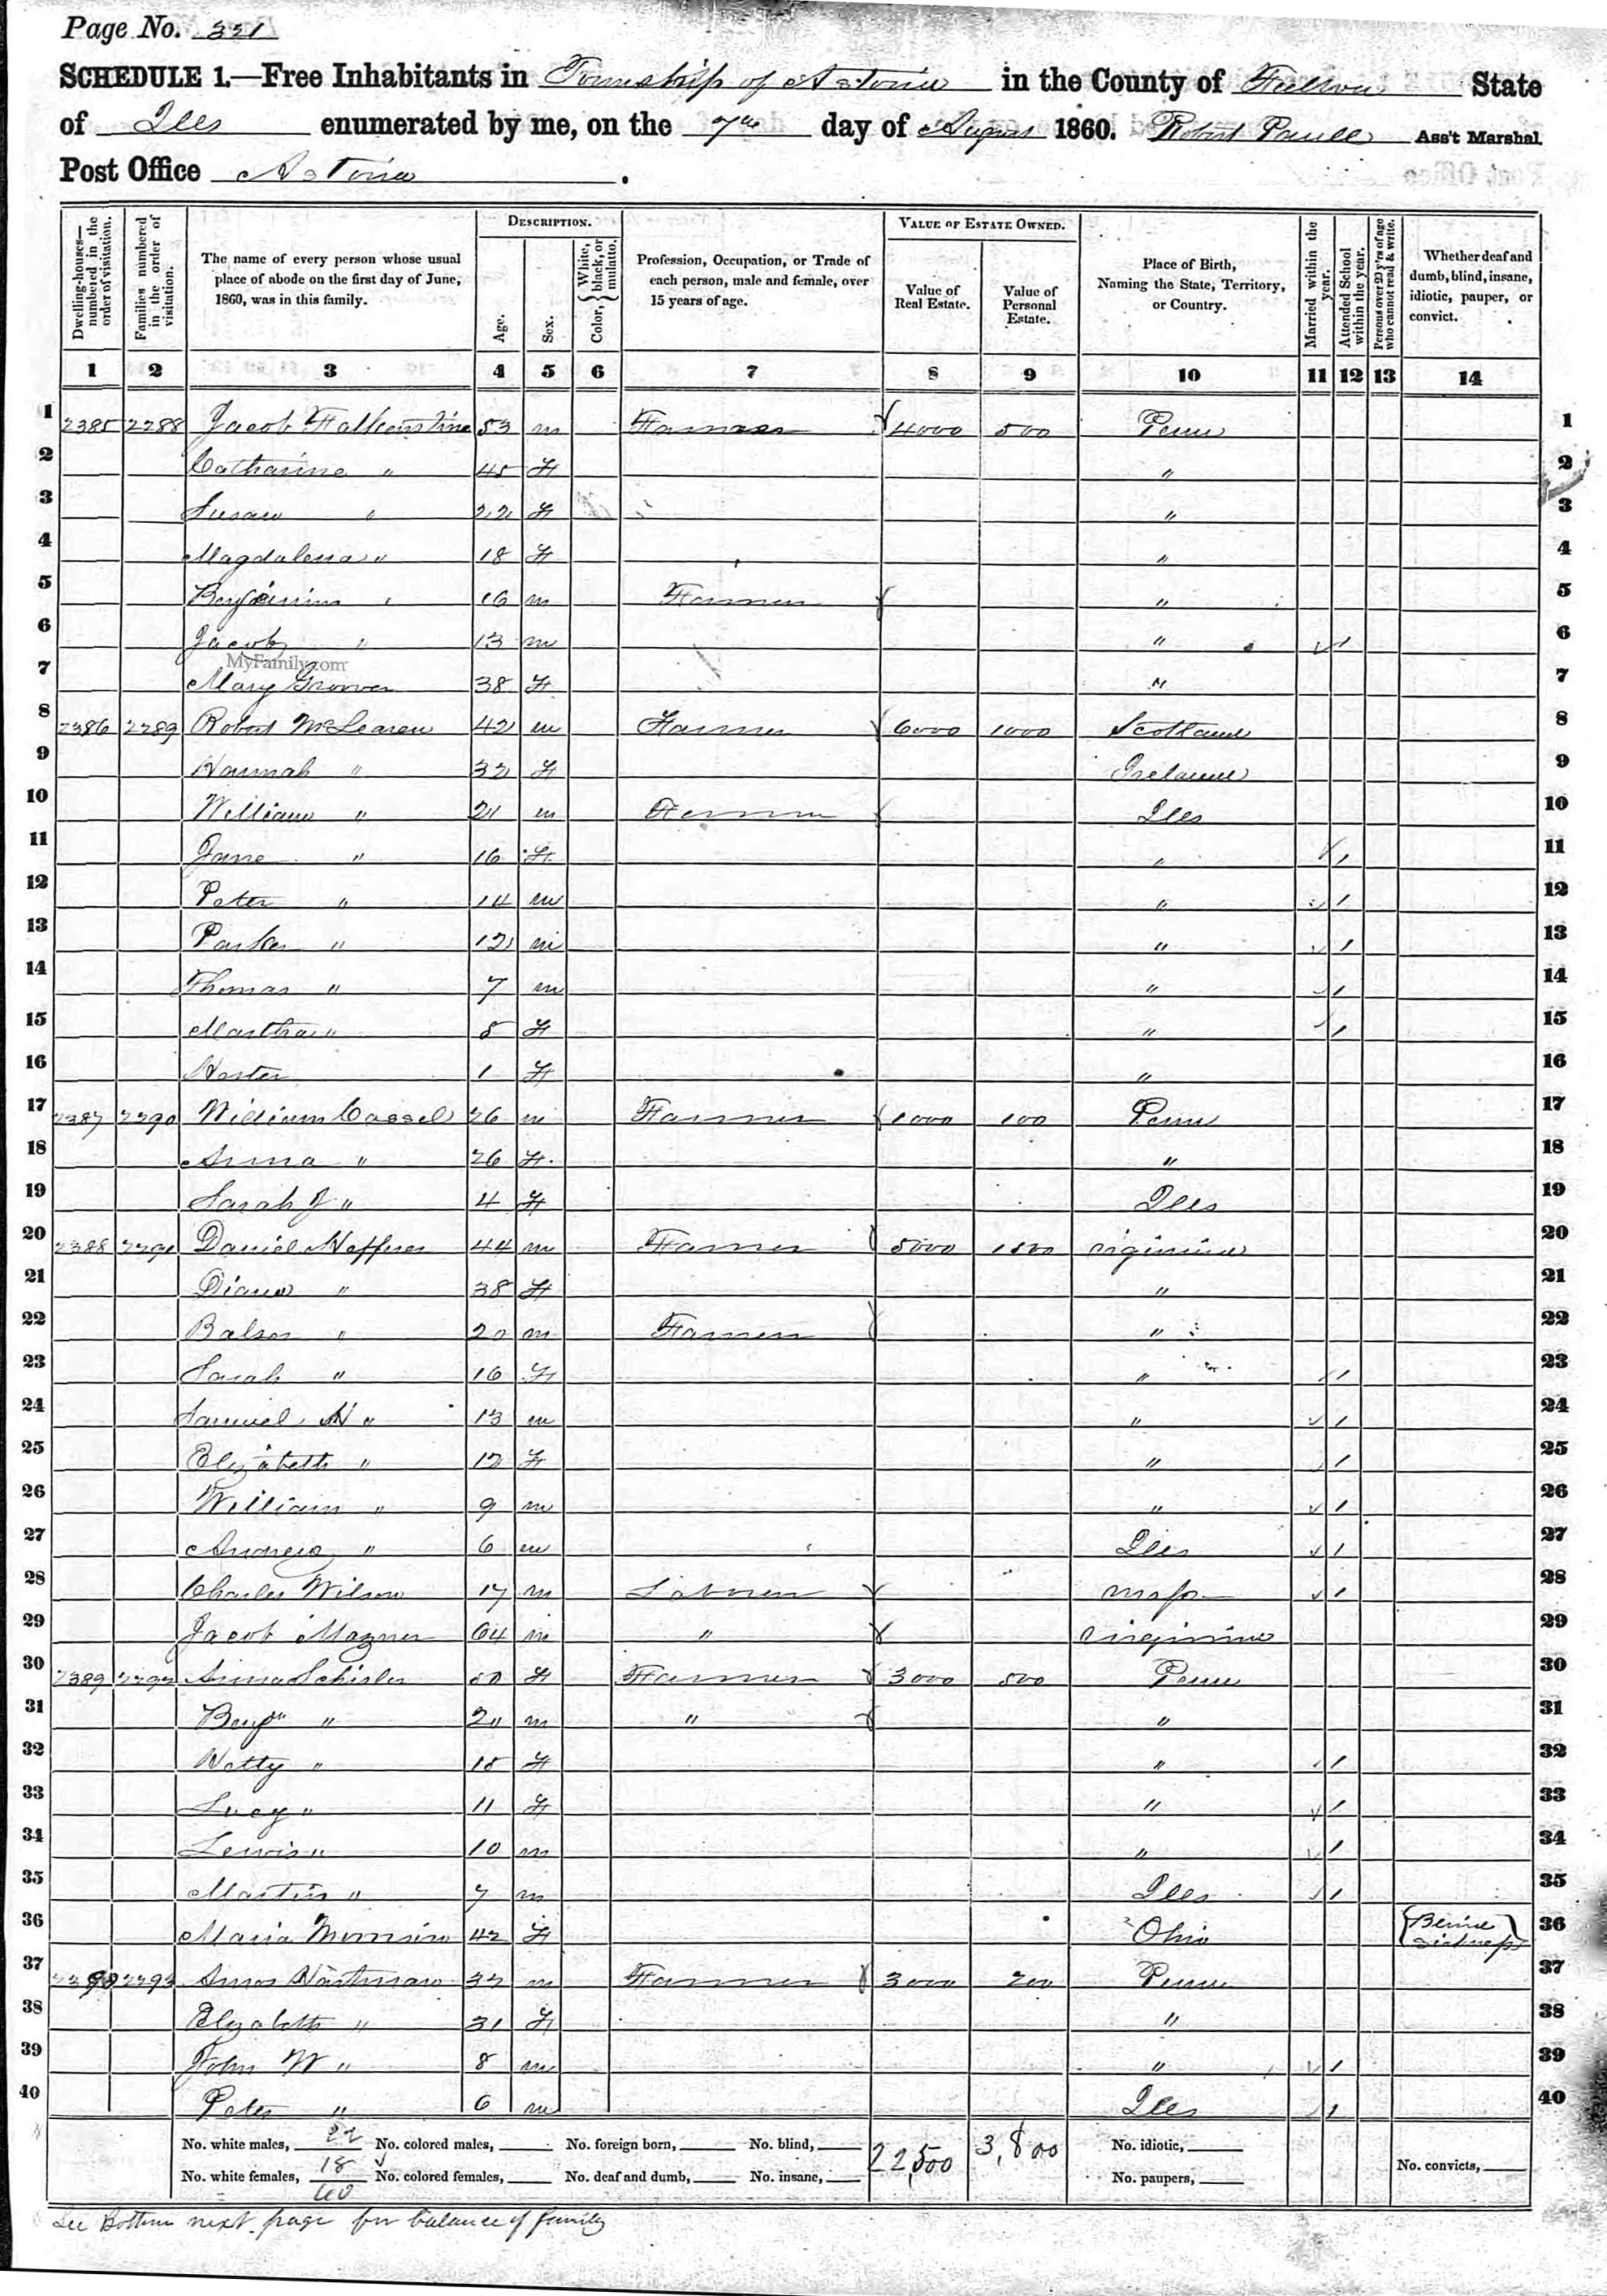 Page No. 321
SCHEDULE 1.—Free Inhabitants in Township of Astoria in the County of Fulton State
of Ills enumerated by me, on the 7th day of August 1860. Robert Ass't Marshal.
Post Office Astoria.
DESCRIPTION. VALUE OF ESTATE OWNED.
Dwelling-houses—numbered in the order of visitation. Families numbered in the order of visitation. The name of every person whose usual place of abode on the first day of June, 1860, was in this family. Age. Sex. Color, { White, black, or mulatto. Profession, Occupation, or Trade of each person, male and female, over 15 years of age. Value of Real Estate. Value of Personal Estate. Place of Birth, Naming the State, Territory, or Country. Married within the year. Attended School within the year. Persons over 20 y'rs of age who cannot read & write. Whether deaf and dumb, blind, insane, idiotic, pauper, or convict.
1 2 3 4 5 6 7 8 9 10 11 12 13 14
1 2385 2288 Jacob Falkenstine 53 m Farmer 4000 500 Penn 1
2 Catharine " 45 F " 2
3 Susan " 22 F " 3
4 Magdalena " 18 F " 4
5 Benjamin " 16 m Farmer " 5
6 Jacob " 13 m " / 6
MyFamily.com
7 Mary Groover 38 F " 7
8 2386 2289 Robert McLearen 42 m Farmer 6000 1000 Scotland 8
9 Hannah " 32 F Ireland 9
10 William " 21 m Farmer Ills 10
11 Jane " 16 F " / 11
12 Peter " 14 m " / 12
13 Parker " 12 m " / 13
14 Thomas " 7 m " / 14
15 Martha " 5 F " / 15
16 Hester 1 F " 16
17 2387 2290 William Cassel 26 m Farmer 1000 100 Penn 17
18 Anna " 26 F " 18
19 Sarah J " 4 F Ills 19
20 2388 2291 Daniel Heffner 44 m Farmer 5000 1500 virginia 20
21 Diana " 38 F " 21
22 Balser " 20 m Farmer " 22
23 Sarah " 16 F " / 23
24 Samuel H " 13 m " / 24
25 Elizabeth " 12 F " / 25
26 William " 9 m " / 26
27 Andrew " 6 m Ills / 27
28 Charles Wilson 17 m Laborer Mass / 28
29 Jacob 64 m " virginia 29
30 2389 2292 Anna Schisler 50 F Farmer 3000 500 Penn 30
31 Benjn " 21 m " " 31
32 Hetty " 15 F " / 32
33 Lucy " 11 F " / 33
34 Lewis " 10 m " / 34
35 Martin " 7 m Ills / 35
36 Maria Morrison 42 F Ohio 36
37 2390 2293 Amos Hartman 32 m Farmer 3000 200 Penn 37
38 Elizabeth " 31 F " 38
39 John W " 8 m " / 39
40 Peter " 6 m Ills / 40
No. white males, 22 No. colored males, No. foreign born, No. blind, 22,500 3,800 No. idiotic,
No. white females, 18 No. colored females, No. deaf and dumb, No. insane, No. paupers, No. convicts,
40
See Bottom next page for balance of family